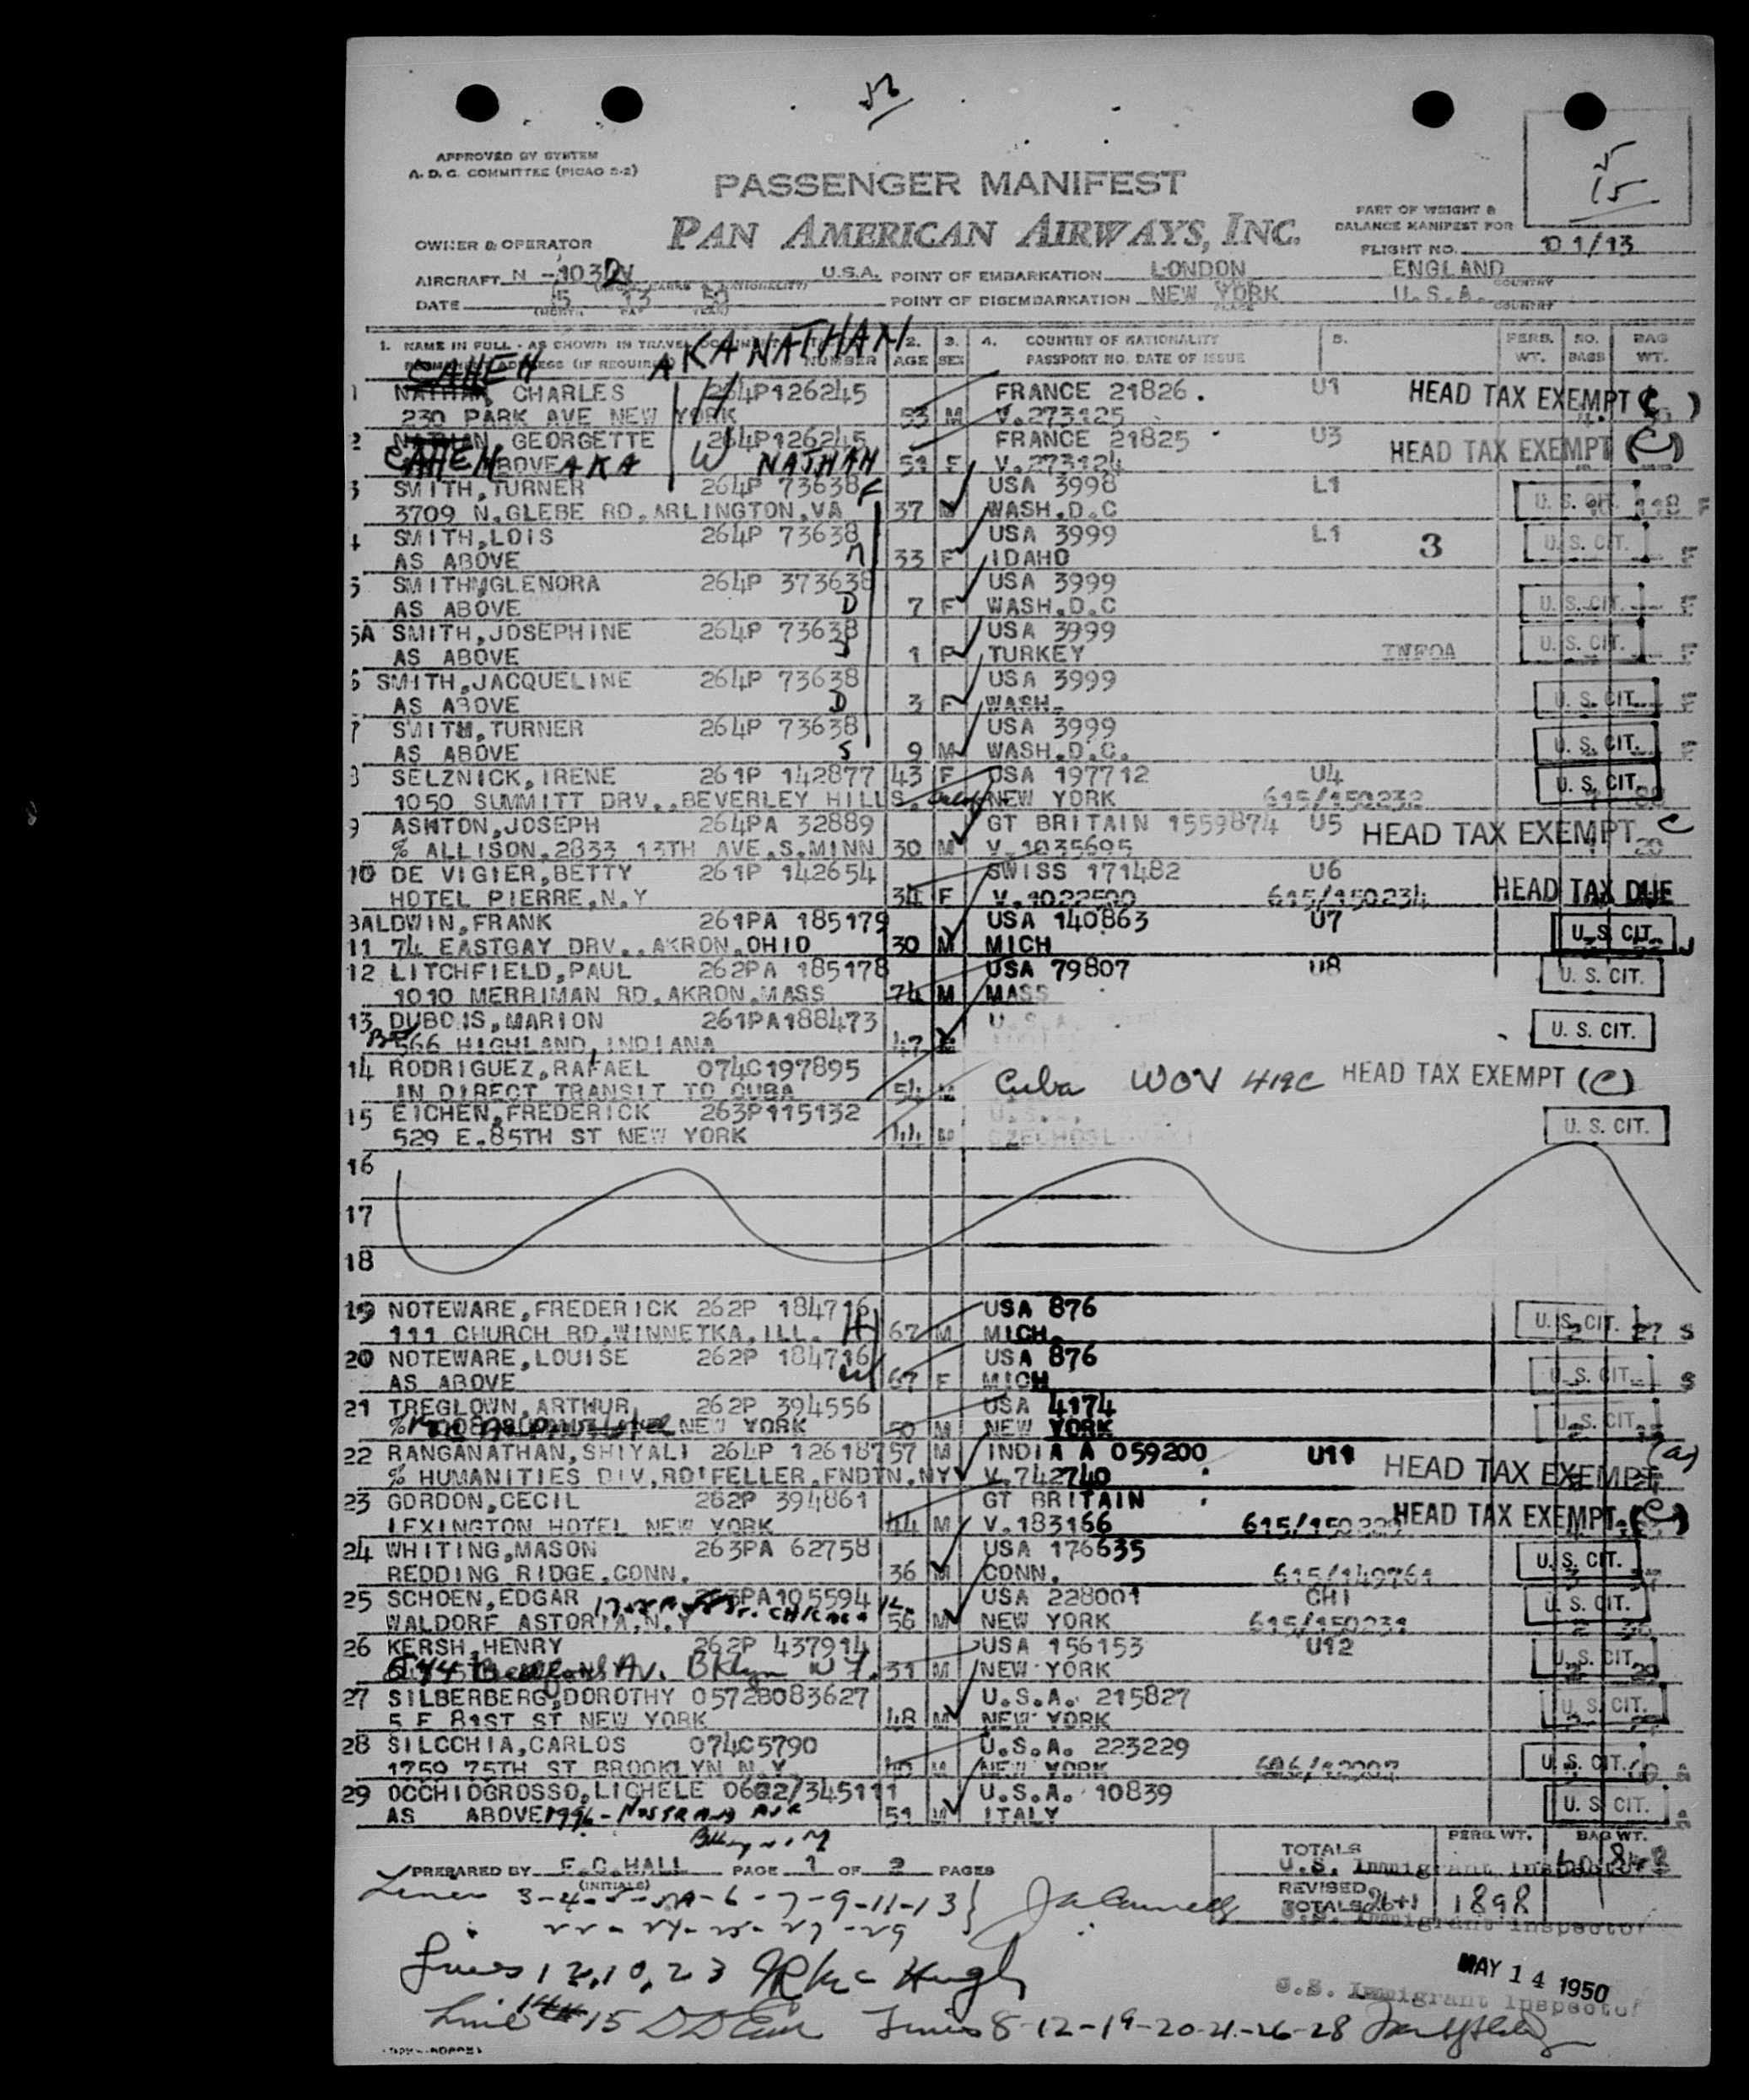 52
APPROVED BY SYSTEM
A. D. C. COMMITTEE (PICAO S-2)
PASSENGER MANIFEST
PAN AMERICAN AIRWAYS, INC.
15
PART OF WEIGHT &
BALANCE MANIFEST FOR
OWNER & OPERATOR
FLIGHT NO. 101/13
AIRCRAFT N-103 U.S.A. POINT OF EMBARKATION LONDON ENGLAND
DATE 5 13 50 POINT OF DISEMBARKATION NEW YORK U.S.A.
1. NAME IN FULL - AS SHOWN IN TRAVEL NUMBER 2. AGE 3. SEX 4. COUNTRY OF NATIONALITY PASSPORT NO. DATE OF ISSUE 5. PERS. WT. NO. BAGS BAG WT.
CAHEN AKA NATHAN
1 NATHAN, CHARLES H 264P126245 FRANCE 21826. U1 HEAD TAX EXEMPT (C)
230 PARK AVE NEW YORK 53 M V.273125
2 NATHAN, GEORGETTE 264P126245 FRANCE 21825 U3 HEAD TAX EXEMPT (C)
CAHEN ABOVE AKA W NATHAN 51 F V.273124
3 SMITH, TURNER 264P 73638 F USA 3998 L1 U. S. CIT. F
3709 N.GLEBE RD.ARLINGTON,VA 37 M WASH.D.C
4 SMITH,LOIS 264P 73638 USA 3999 L1 3 U. S. CIT. F
AS ABOVE M 33 F IDAHO
5 SMITH,GLENORA 264P 373638 USA 3999
AS ABOVE D 7 F WASH.D.C U. S. CIT. F
5A SMITH,JOSEPHINE 264P 73638 USA 3999 U. S. CIT. F
AS ABOVE 1 F TURKEY
6 SMITH,JACQUELINE 264P 73638 USA 3999
AS ABOVE D 3 F WASH. U. S. CIT. F
7 SMITH,TURNER 264P 73638 USA 3999
AS ABOVE S 9 M WASH.D.C. U. S. CIT. F
8 SELZNICK,IRENE 261P 142877 43 F USA 197712 U4 U. S. CIT.
1050 SUMMITT DRV..BEVERLEY HILLS. Calif NEW YORK 615/150232
9 ASHTON,JOSEPH 264PA 32889 GT BRITAIN 1559874 U5 HEAD TAX EXEMPT C
% ALLISON,2833 13TH AVE.S.MINN 30 M V.1035695 20
10 DE VIGIER,BETTY 261P 142654 SWISS 171482 U6
HOTEL PIERRE,N.Y 34 F V.1022500 615/150234 HEAD TAX DUE
BALDWIN,FRANK 261PA 185179 USA 140863 U7
11 74 EASTGAY DRV..AKRON,OHIO 30 M MICH U.S. CIT.
12 LITCHFIELD,PAUL 262PA 185178 USA 79807 U8 U. S. CIT.
1010 MERRIMAN RD.AKRON,MASS 74 M MASS
13 DUBOIS,MARION 261PA188473 U.S.A. U. S. CIT.
566 HIGHLAND, INDIANA 47
14 RODRIGUEZ,RAFAEL 074C197895 Cuba WOV 419C HEAD TAX EXEMPT (C)
IN DIRECT TRANSIT TO CUBA 54 M
15 EICHEN,FREDERICK 263P115132 U.S.A. U. S. CIT.
529 E.85TH ST NEW YORK 44 CZECHOSLOVAKI
16
17
18
19 NOTEWARE,FREDERICK 262P 184716 USA 876 U. S. CIT. 27 S
111 CHURCH RD.WINNETKA,ILL. H 67 M MICH.
20 NOTEWARE,LOUISE 262P 184716 USA 876 U. S. CIT. S
AS ABOVE W 67 F MICH
21 TREGLOWN,ARTHUR 262P 394556 USA 4174 U. S. CIT.
NEW YORK 50 M NEW YORK
22 RANGANATHAN,SHIYALI 264P 126187 57 M INDIA A 059200 U11 HEAD TAX EXEMPT (a)
% HUMANITIES DIV,RO'FELLER.FNDTN.NY V.742740
23 GORDON,CECIL 262P 394861 GT BRITAIN HEAD TAX EXEMPT. (C)
LEXINGTON HOTEL NEW YORK 44 M V.183166
24 WHITING,MASON 263PA 62758 USA 176635 U.S. CIT.
REDDING RIDGE,CONN. 36 M CONN. 615/149761
25 SCHOEN,EDGAR 263PA105594 USA 228001 CH1 U.S. CIT.
WALDORF ASTORIA,N.Y CHICAGO IL. 56 M NEW YORK 615/150231
26 KERSH,HENRY 262P 437914 USA 156153 U12 U.S. CIT.
Av. Bklyn N.Y. 31 M NEW YORK
27 SILBERBERG,DOROTHY 05728083627 U.S.A. 215827 U.S. CIT.
5 E 81ST ST NEW YORK 48 M NEW YORK
28 SILCCHIA,CARLOS 074C5790 U.S.A. 223229
1759 75TH ST BROOKLYN N.Y. 40 M NEW YORK U.S. CIT.
29 OCCHIOGROSSO,LICHELE 0622/345111 U.S.A. 10839 U. S. CIT.
AS ABOVE 1996 - NOSTRAND AVE 51 M ITALY
Bklyn N Y
PREPARED BY F.C.HALL (INITIALS) PAGE 1 OF 2 PAGES
TOTALS PERS. WT. BAG WT.
U.S. Immigrant Inspector
REVISED TOTALS 26+1 1898
U.S. Immigrant Inspector
Lines 3-4-5-5A-6-7-9-11-13
22-24-25-27-29
Lines 1 2,10,23 McHugh
MAY 14 1950
U.S. Immigrant Inspector
Line 14 15 Lines 8-12-19-20-21-26-28